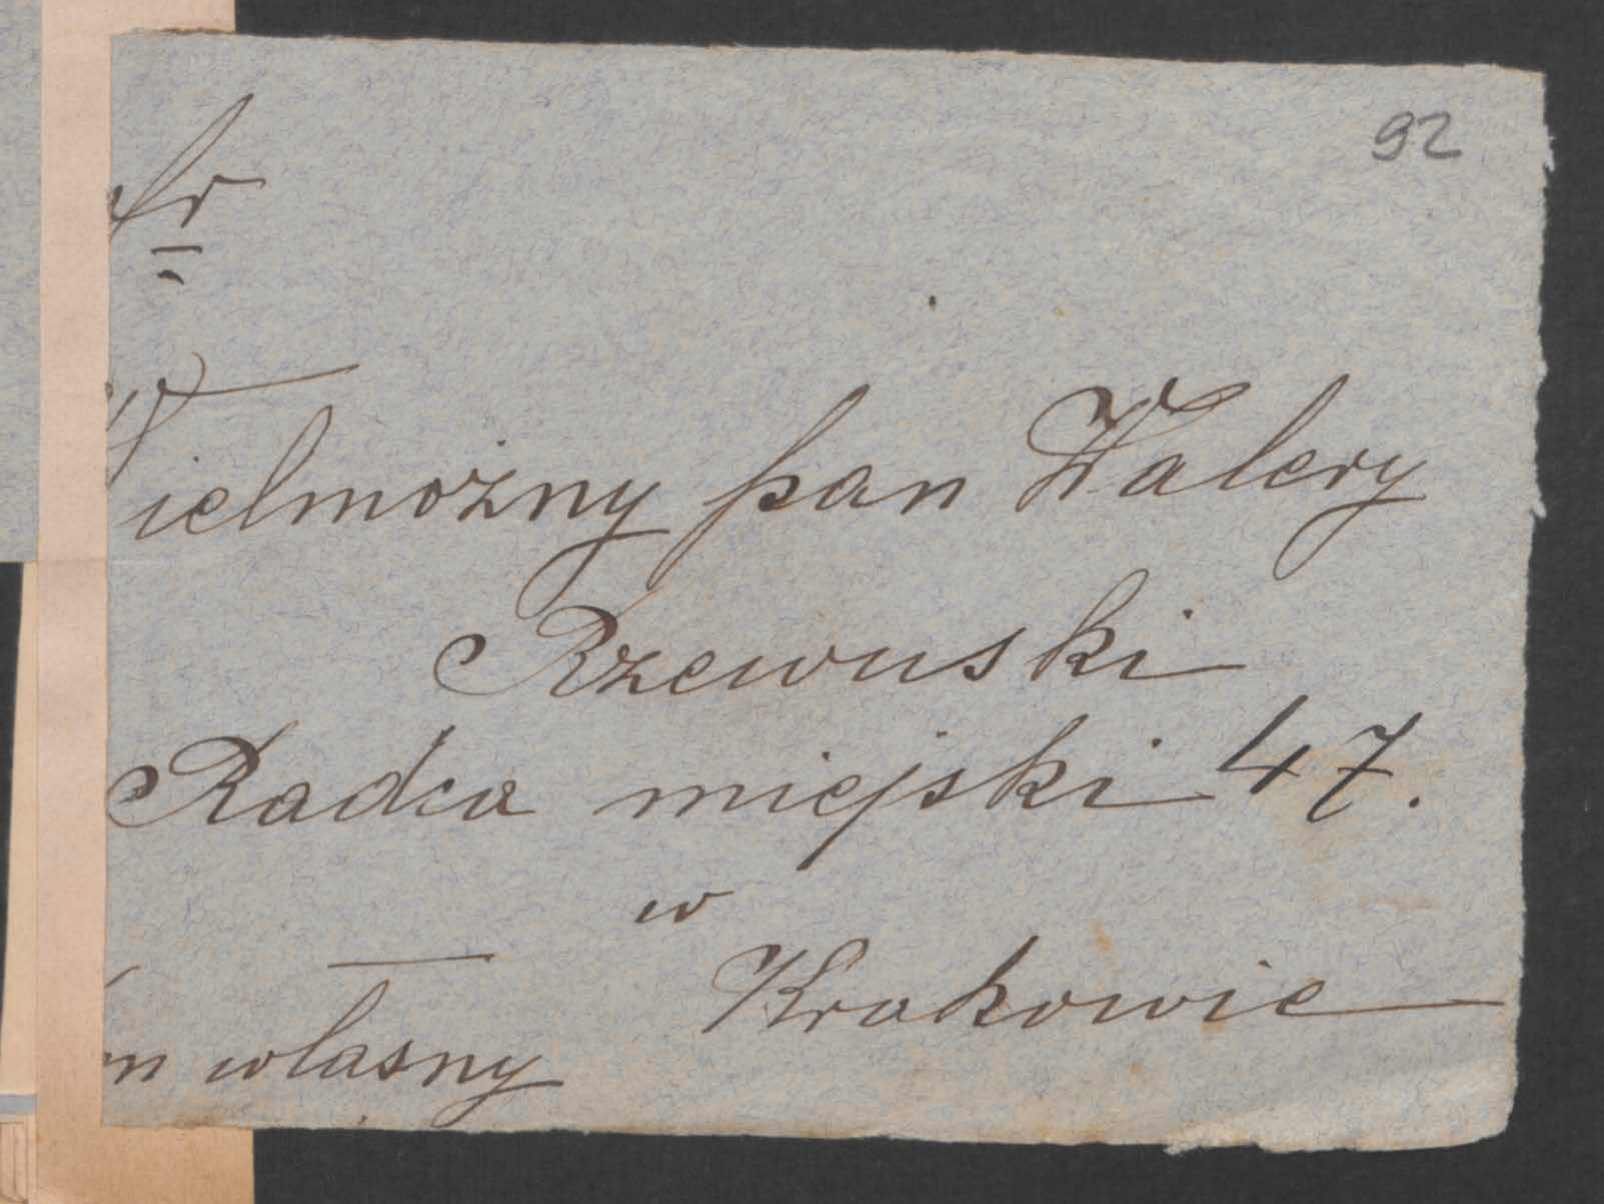 92
fr
Wielmożny pan Walery
Rzewuski
Radca miejski 47.
w
Krakowie
m własny